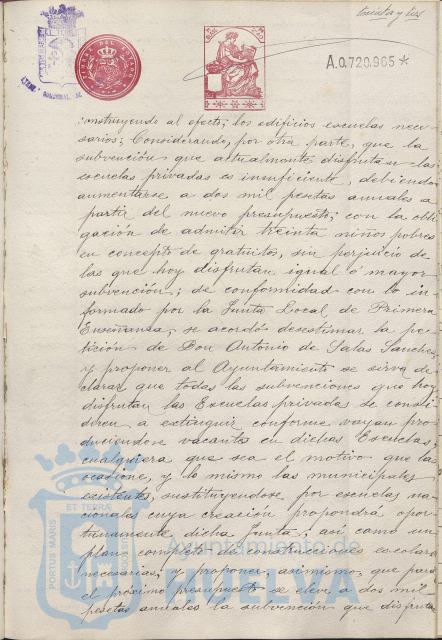 treinta y tres
TIMBRE DEL ESTADO
A.0.720.965*
construyendo al efecto, los edificios escuelas nece-
sarios; Considerando, por otra parte, que la
subvención que actualmente disfrutan las
escuelas privadas es insuficiente, debiendo
aumentarse a dos mil pesetas anuales a
partir del nuevo presupuesto, con la obli-
gación de admitir treinta niños pobres
en concepto de gratuitos, sin perjuicio de
las que hoy disfrutan igual ó mayor
subvención; de conformidad con lo in-
formado por la Junta Local de Primera
Enseñanza, se acordó desestimar la pe-
tición de Don Antonio de Salas Sánchez
y proponer al Ayuntamiento se sirva de-
clarar que todas las subvenciones que hoy
disfrutan las Escuelas privadas se consi-
deren a extinguir conforme vayan pro-
duciendose vacantes en dichas Escuelas,
cualquiera que sea el motivo que la
ocasione, y lo mismo las municipales
existentes, sustituyendose por escuelas na-
cionales cuya creación propondrá opor-
tunamente dicha Junta, asi como un
plan completo de construcciones escolares
necesarias; y proponer asimismo, que para
el próximo presupuesto se eleve a dos mil
pesetas anuales la subvención que disfrutan
PORTUS MARIS ET TERRÆ
Ayuntamiento de
HUELVA